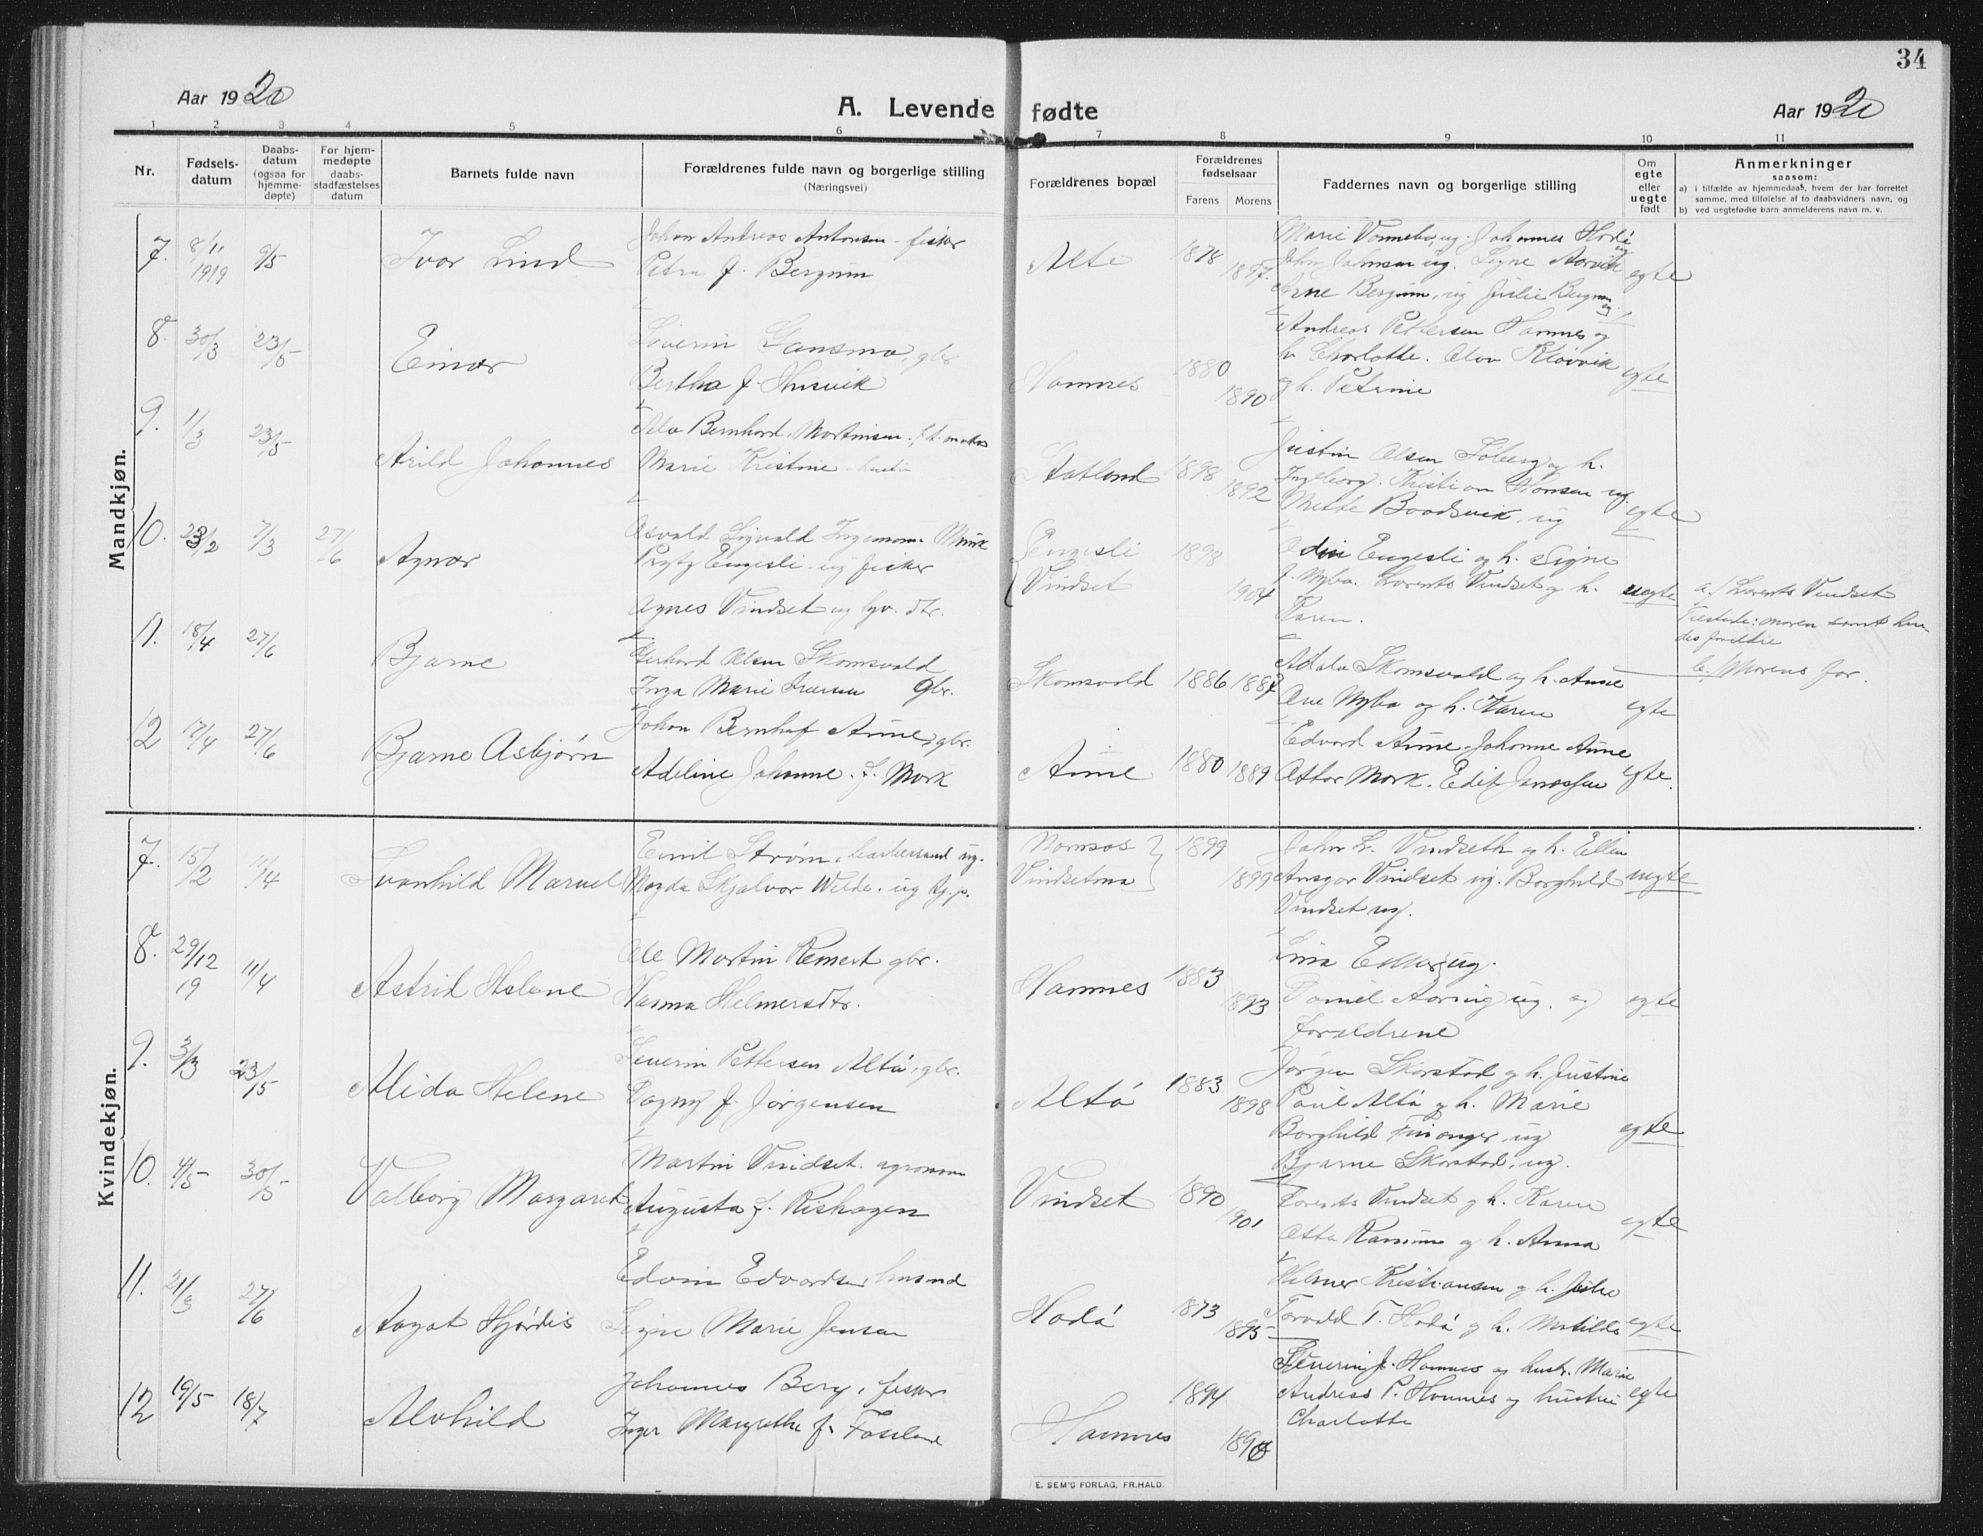 34
Aar 1920
A. Levende fødte
Aar 1920
1 2 3 4 5 6 7 8 9 10 11
Nr.
Fødsels-
datum
Daabs-
datum
(ogsaa for
hjemme-
døpte)
For hjem-
medøpte
daabs-
stadfæstelses
datum
Barnets fulde navn
Forældrenes fulde navn og borgerlige stilling
(Næringsvei)
Forældrenes bopæl
Forældrenes
fødselsaar
Farens Morens
Faddernes navn og borgerlige stilling
Om
egte
eller
uegte
født
Anmerkninger
saasom:
a) i tilfælde av hjemmedaab, hvem der har forrettet
samme, med tilføielse af to daabsvidners navn, og
b) ved uegtefødte barn anmelderens navn m. v.
Mandkjøn.
7. 8/11 1919 9/5 Ivor Lind
Johan Andreas Antonsen - fisker
Petra f. Bergum
Alte 1878 1897
Johannes Hodø
Signe
Arne Bergum, ug Julie
egte
8. 30/3 23/5 Einar
Severin gbr.
Bertha f. Husvik
Hamnes 1880 1890
Andreas Pettersen Hamnes og
h. Charlotte. Olav Kløvvik
og h. Petrine
egte
9. 1/3 23/5 Arild Johannes
Ole Bernhard Martinsen
Marie Kristine
1898 1892
Justin Olsen Soberg og h.
Ingeborg. Kristian Hansen ug.
Mette ug
egte
10. 23/2 7/3 27/6 Agnar
Osvald Sigvald
Engesli - ug fisker
Agnes Vindset ug gbr. dtr.
Engesli
Vindset
1898 1904
Odin Engesli og h. Signe
f. Myba. Lorents Vindset og h.
Karen.
uegte
a/ Lorents Vindset
Tilstede: moren samt hen-
des foreldre
b/ Morens far.
11. 18/4 27/6 Bjarne
Gerhard Olsen Skomsvold
Inga Marie Iversen gbr.
Skomsvold 1886 1887
Skomsvold og h. Anne
Ole Myba og h. Karen
egte
12 17/4 27/6 Bjarne Asbjørn
Johan Bernhof Aune, gbr.
Adeline Johanne f. Mork
Aune 1880 1889
Edvard Aune. Johanne Aune
Mork. Edit
egte.
Kvindekjøn.
7. 15/2 11/4 Svanhild
Emil Strøm, ug.
Magda Skjalvor Welde. ug
Namsos
Vindsetmo
1899 1899
John L. Vindseth og h. Ellen
Ansgar Vindset ug. Borghild
Vindset ug.
uegte
8. 29/12 19 11/4 Astrid Helene
Ole Martin Remert gbr.
Helmersdtr.
Hamnes 1883 1893
ug.
ug. og
foreldrene
egte
9. 3/3 23/5 Alida Helene
Severin Pettersen Altø, gbr.
Dagny f. Jørgensen
Altø 1883 1898
Jørgen Skorstad og h. Justine
Paul Altø og h. Marie
Borghild Finanger, ug
Bjarne Skorstad, ug.
egte
10. 4/5 30/5 Valborg Margaret
Martin Vindset. agronom
Augusta f. Rishagen
Vindset 1890 1901
Lorents Vindset og h. Karen
og h. Anna
egte
11. 27/6 Aagot Hjørdis
Edvin Edvardsen husmd
Signe Marie Jensen
Hodø 1873 1895
Helmer Kristiansen og h. Julie
Torvald T. Hodø og h. Matilde
egte
12 19/5 18/7 Alvhild
Johannes Berg, fisker
Inger Margrethe f. Fossland
Hamnes 1894
Severin J. Hamnes og hustr. Marie
Andreas P. Hamnes og hustru
Charlotte
egte
E. SEM'S FORLAG, FR.HALD.